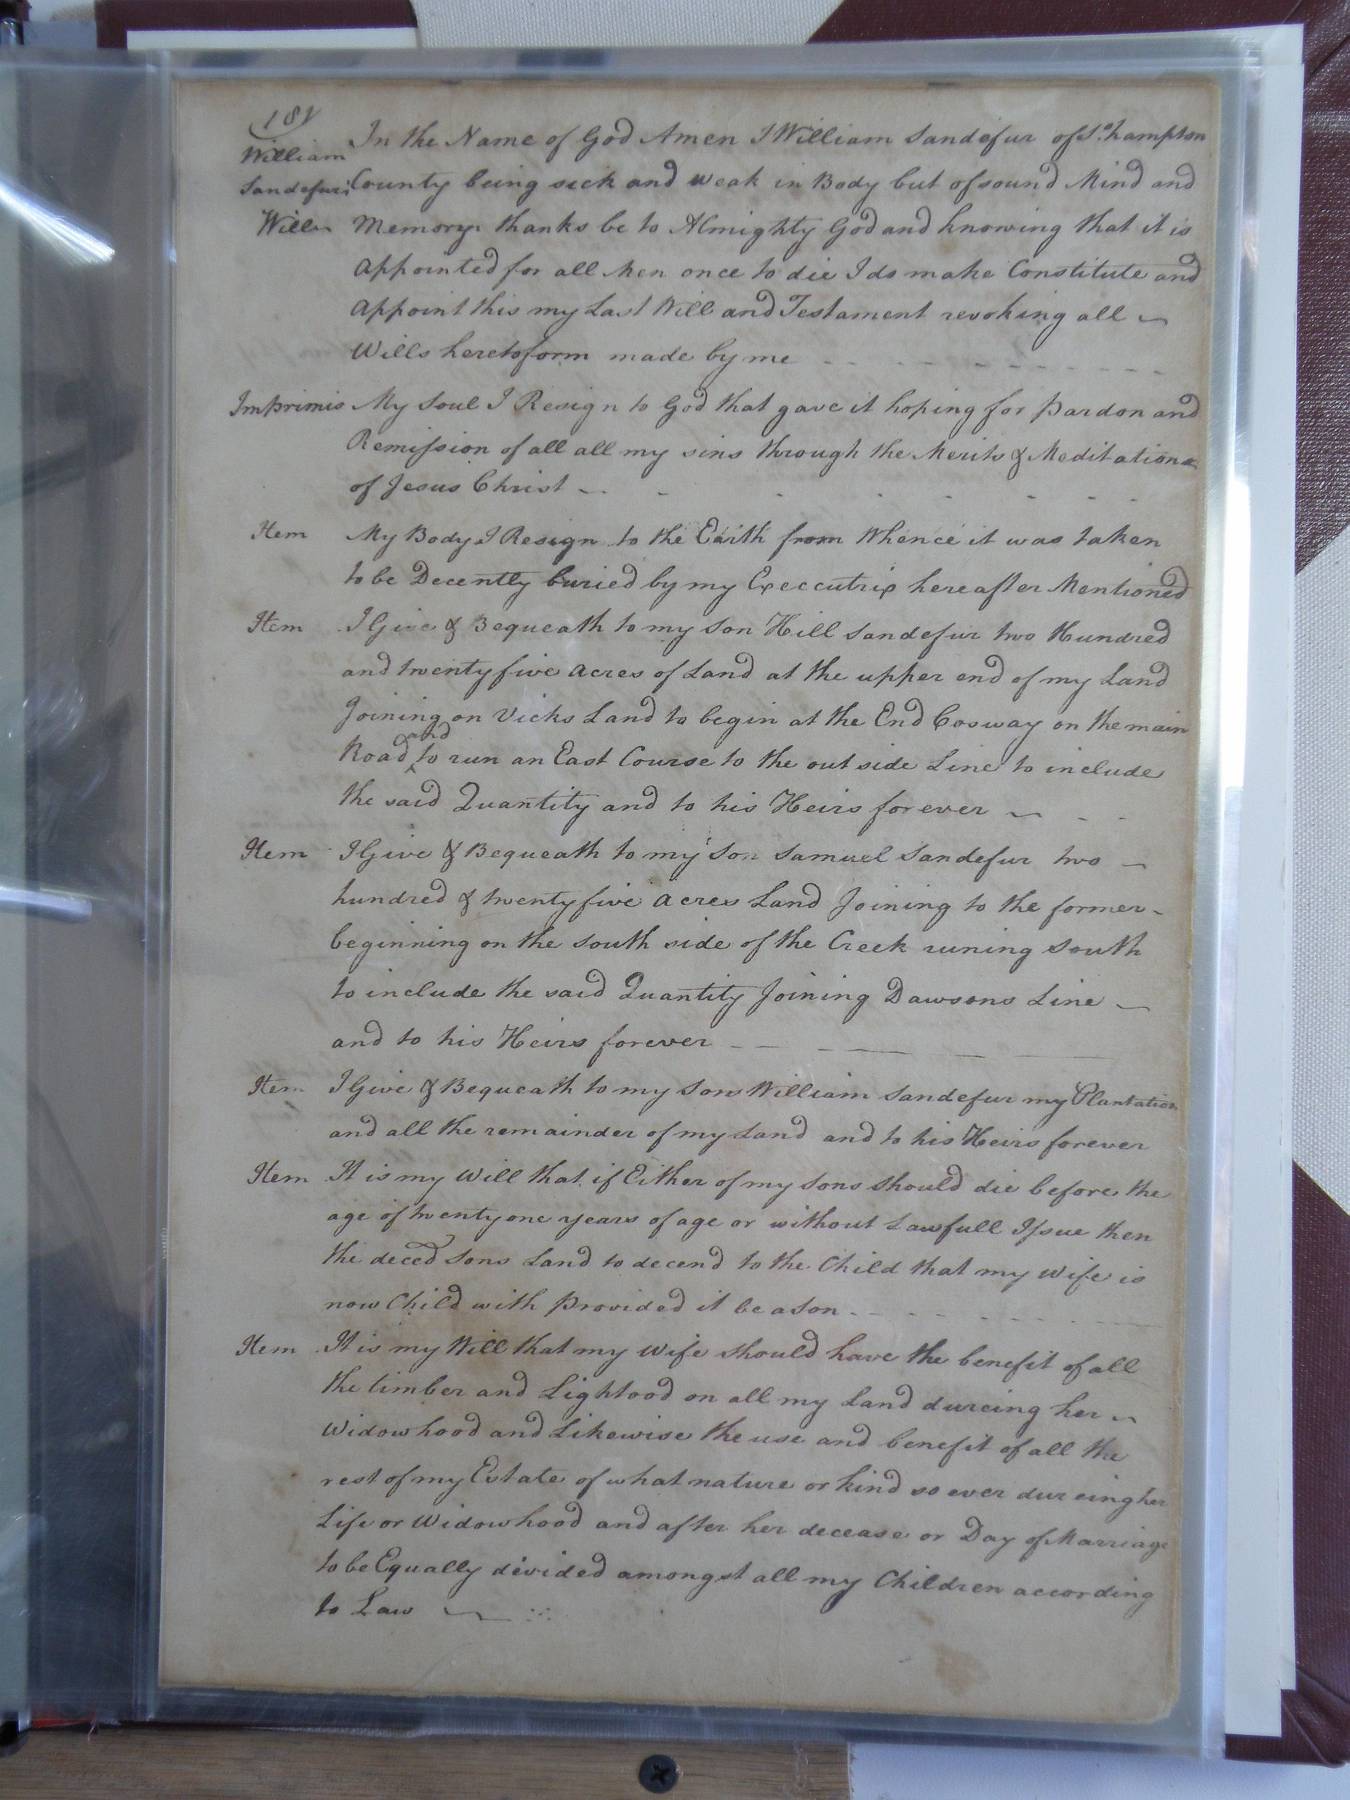 181
William In the Name of God Amen I William Sandefur of So.hampton
Sandefurs County being sick and weak in Body but of sound Mind and
Will Memory thanks be to Almighty God and knowing that it is
appointed for all Men once to die I do make Constitute and
appoint this my Last Will and Testament revoking all
Wills heretoform made by me
Imprimis My Soul I Resign to God that gave it hoping for Pardon and
Remission of all all my sins through the Merits & Meditation
of Jesus Christ
Item My Body I Resign to the Earth from Whence it was taken
to be Decently buried by my Execcutrix hereafter Mentioned
Item I Give & Bequeath to my Son Hill Sandefur two Hundred
and twenty five acres of Land at the upper end of my Land
Joining on Vicks Land to begin at the End Cosway on the main
Road and to run an East Course to the out side Line to include
the said Quantity and to his Heirs forever
Item I Give & Bequeath to my Son Samuel Sandefur two
hundred & twenty five acres Land Joining to the former
beginning on the South side of the Creek runing South
to include the said Quantity Joining Dawsons Line
and to his Heirs forever
Item I Give & Bequeath to my Son William Sandefur my Plantation
and all the remainder of my Land and to his Heirs forever
Item It is my Will that if Either of my Sons should die before the
age of twenty one years of age or without Lawfull Issue then
the deced Sons Land to decend to the Child that my Wife is
now Child with Provided it be a Son
Item It is my Will that my Wife should have the benefit of all
the timber and Lightood on all my Land dureing her
Widowhood and Likewise the use and benefit of all the
rest of my Estate of what nature or kind so ever dureing her
Life or Widowhood and after her decease or Day of Marriage
to be Equally divided amongst all my Children according
to Law